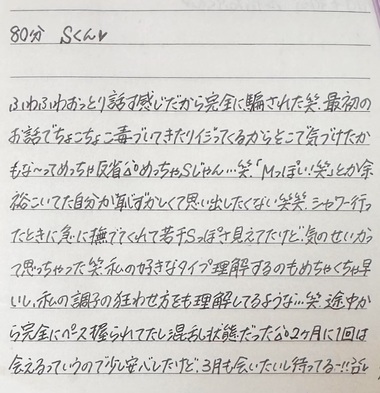 80分 Sくん♥
ふわふわおっとり話す感じだから完全に騙された笑、最初の
お話でちょこちょこ毒づいてきたりイジってくるからどこで気づけたか
もな〜ってめっちゃ反省 めっちゃSじゃん…笑「Mっぽい!笑」とか余
裕こいてた自分が恥ずかしくて思い出したくない笑笑、シャワー行っ
たときに急に撫でてくれて若干Sっぽさ見えてたけど、気のせいかっ
て思っちゃった笑 私の好きなタイプ理解するのもめちゃくちゃ早
いし、私の調子の狂わせ方をも理解してるような…笑 途中か
ら完全にペース握られてたし混乱状態だった 2ヶ月に1回は
会えるっていうので少し安心したけど、3月も会いたいし待ってる〜!!